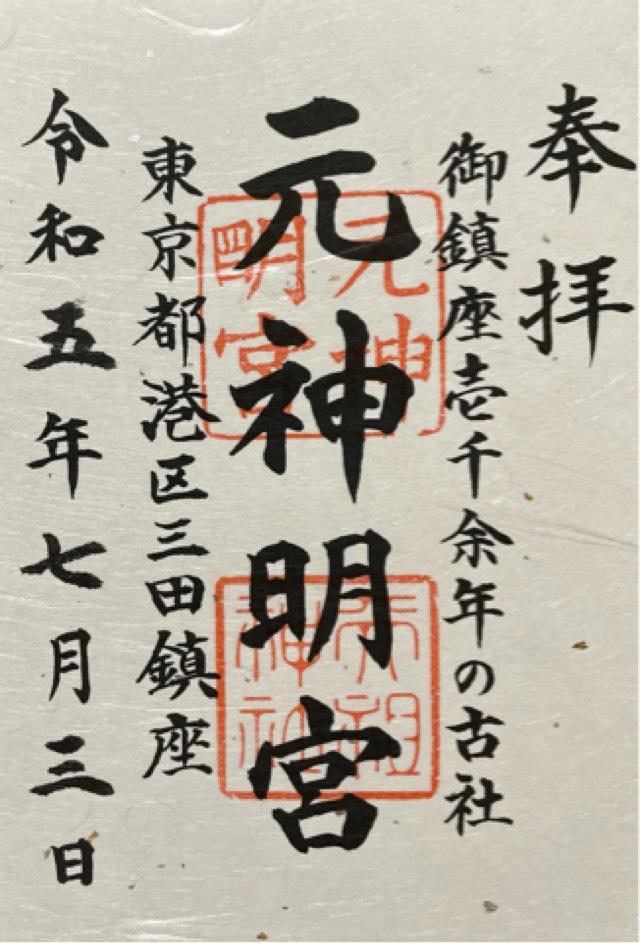 奉拝
御鎮座壱千余年の古社
元神明宮
東京都港区三田鎮座
令和五年七月三日
元神
明宮
天祖
神社